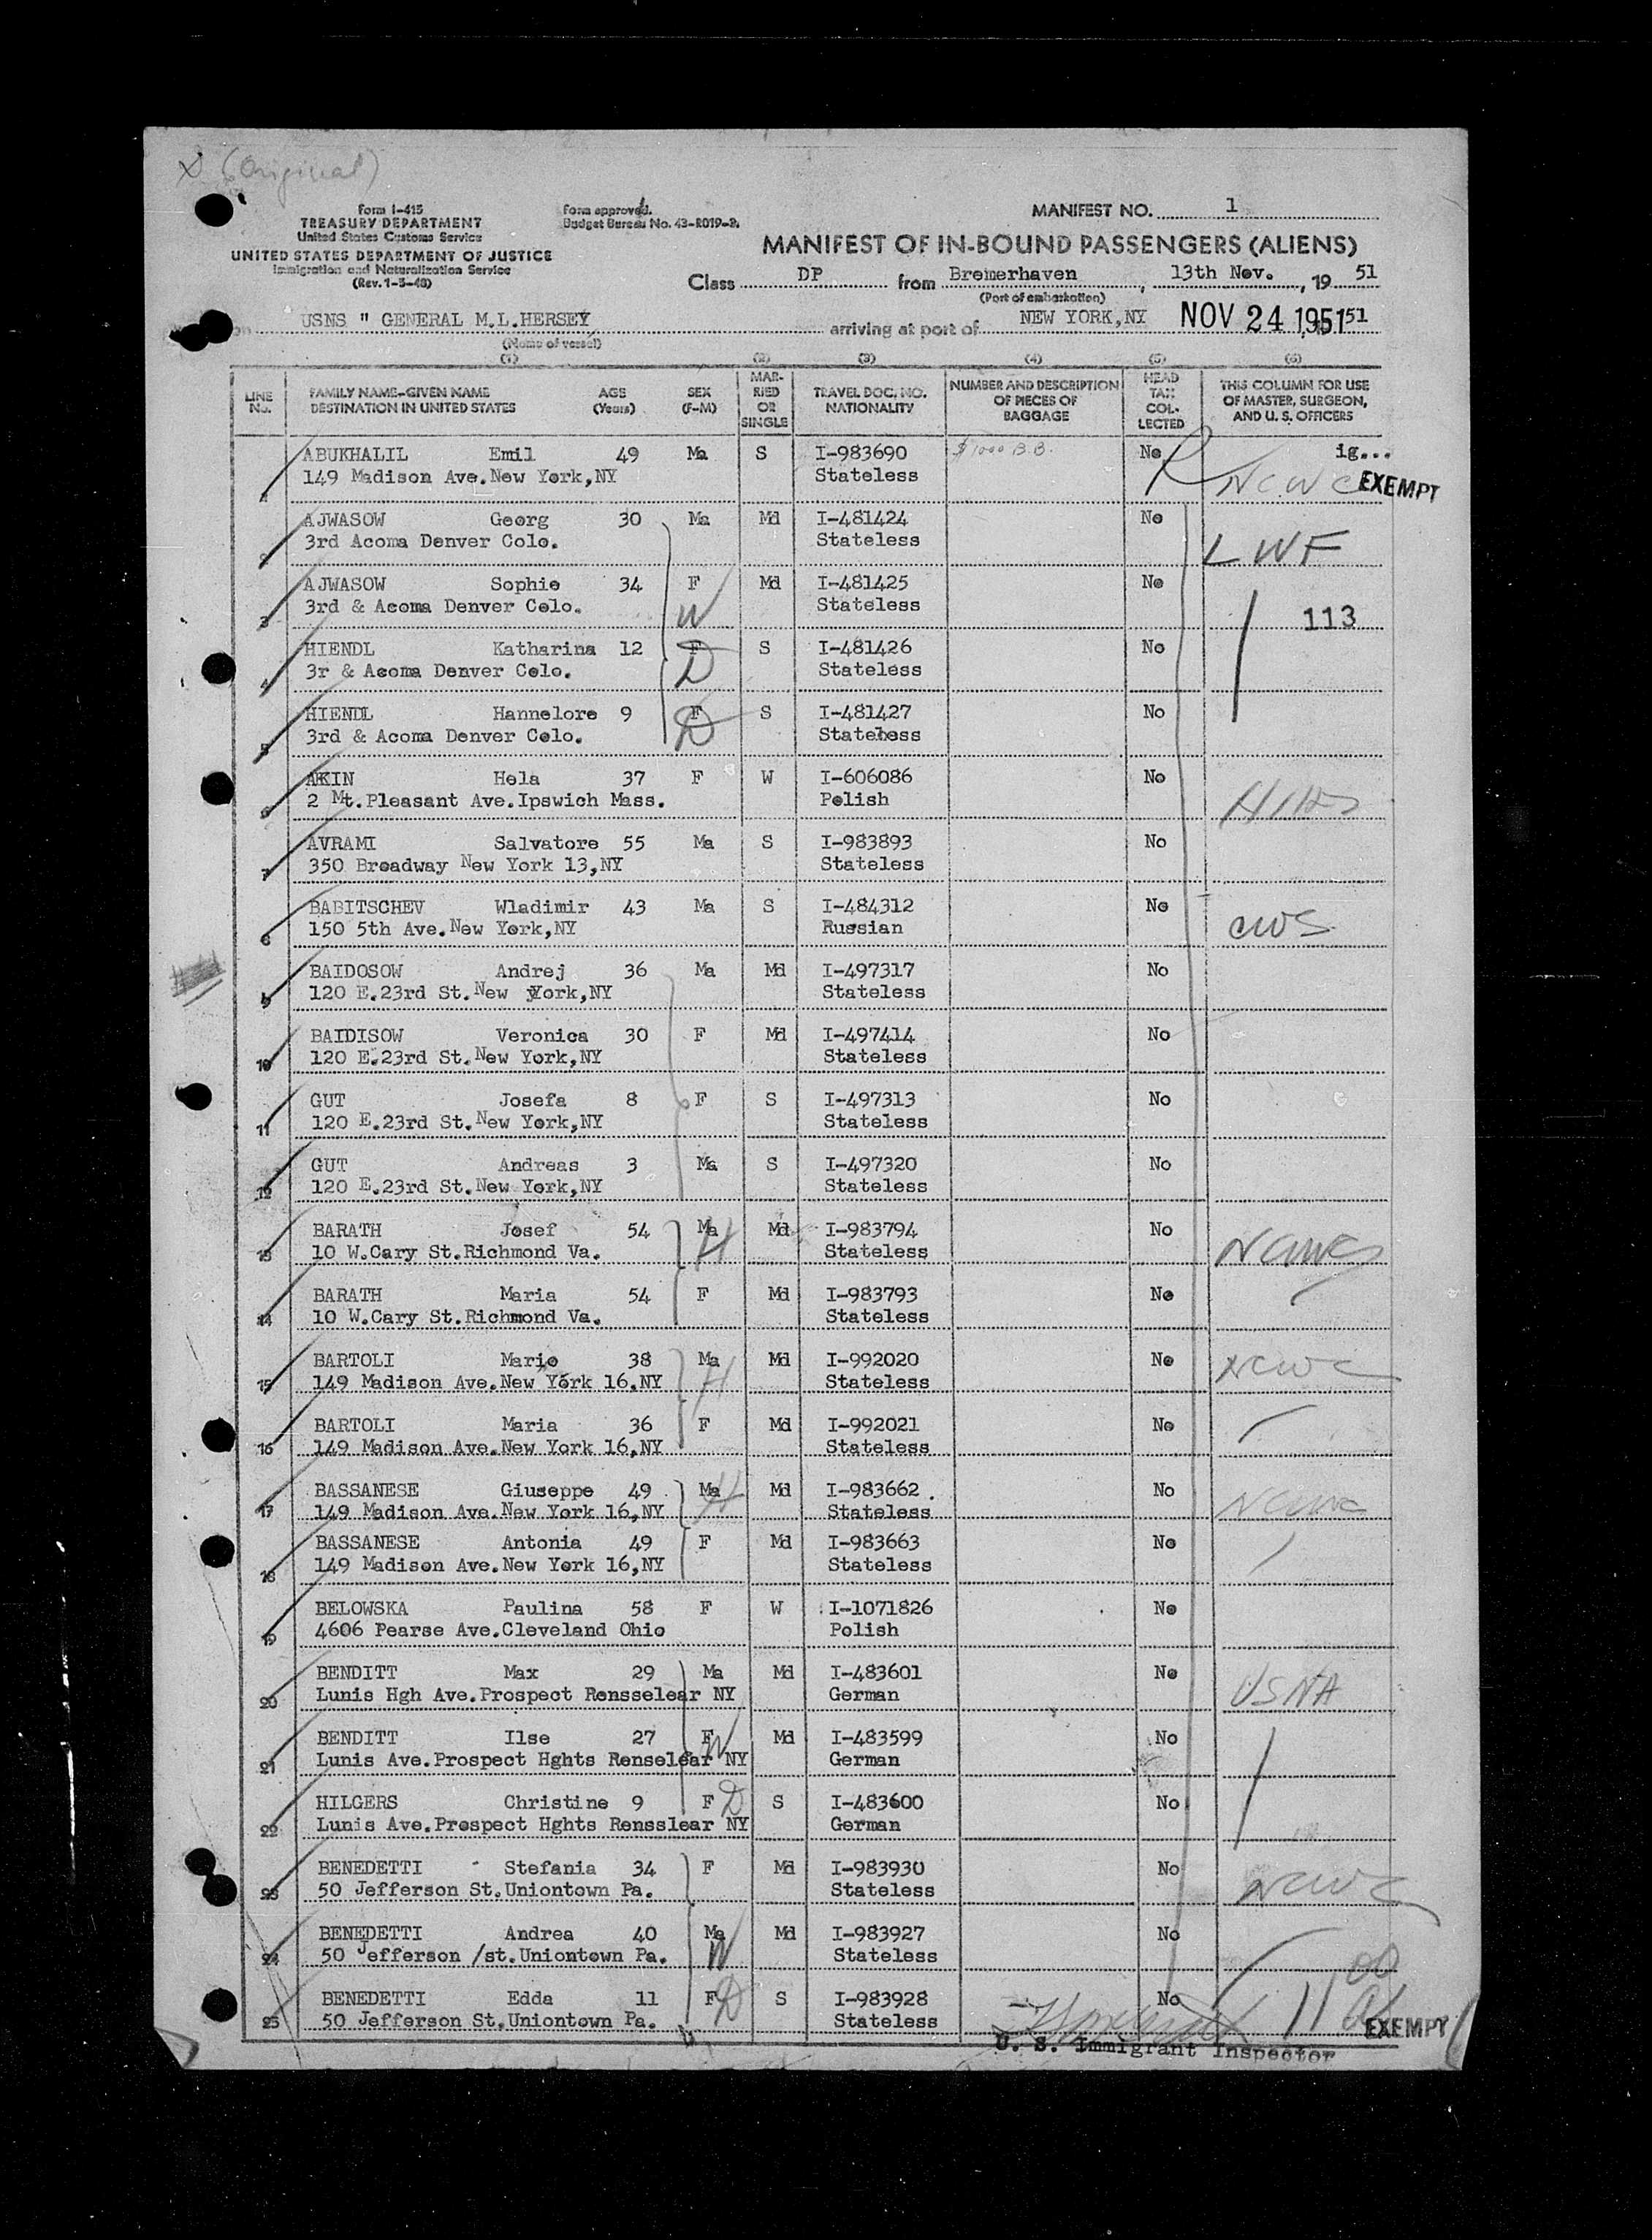 (Original)
Form I-415
TREASURY DEPARTMENT
United States Customs Service
UNITED STATES DEPARTMENT OF JUSTICE
Immigration and Naturalization Service
(Rev. 1-3-48)
Form approved.
Budget Bureau No. 43-R019-2.
MANIFEST NO. 1
MANIFEST OF IN-BOUND PASSENGERS (ALIENS)
Class DP from Bremerhaven, 13th Nov., 19 51
(Port of embarkation)
on USNS " GENERAL M.L.HERSEY arriving at port of NEW YORK,NY NOV 24 1951 51
(Name of vessel)
(1) (2) (3) (4) (5) (6)
LINE No. FAMILY NAME-GIVEN NAME DESTINATION IN UNITED STATES AGE (Years) SEX (F-M) MAR-RIED OR SINGLE TRAVEL DOC. NO. NATIONALITY NUMBER AND DESCRIPTION OF PIECES OF BAGGAGE HEAD TAX COL-LECTED THIS COLUMN FOR USE OF MASTER, SURGEON, AND U. S. OFFICERS
ABUKHALIL Emil 49 Ma S I-983690 $1000 B.B. No ig...
1 149 Madison Ave.New York,NY Stateless NCWC EXEMPT
AJWASOW Georg 30 Ma Md I-481424 No
2 3rd Acoma Denver Colo. Stateless LWF
AJWASOW Sophie 34 F Md I-481425 No
3 3rd & Acoma Denver Colo. W Stateless 113
HIENDL Katharina 12 F S I-481426 No
4 3r & Acoma Denver Colo. D Stateless
HIENDL Hannelore 9 F S I-481427 No
5 3rd & Acoma Denver Colo. D Stateless
AKIN Hela 37 F W I-606086 No
6 2 Mt.Pleasant Ave.Ipswich Mass. Polish HIAS
AVRAMI Salvatore 55 Ma S I-983893 No
7 350 Broadway New York 13,NY Stateless
BABITSCHEV Wladimir 43 Ma S I-484312 No
8 150 5th Ave.New York,NY Russian CWS
BAIDOSOW Andrej 36 Ma Md I-497317 No
9 120 E.23rd St.New York,NY Stateless
BAIDISOW Veronica 30 F Md I-497414 No
10 120 E.23rd St.New York,NY Stateless
GUT Josefa 8 F S I-497313 No
11 120 E.23rd St.New York,NY Stateless
GUT Andreas 3 Ma S I-497320 No
12 120 E.23rd St.New York,NY Stateless
BARATH Josef 54 Ma H Md I-983794 No
13 10 W.Cary St.Richmond Va. Stateless NCWC
BARATH Maria 54 F Md I-983793 No
14 10 W.Cary St.Richmond Va. Stateless
BARTOLI Mario 38 Ma H Md I-992020 No NCWC
15 149 Madison Ave.New York 16.NY Stateless
BARTOLI Maria 36 F Md I-992021 No
16 149 Madison Ave.New York 16,NY Stateless
BASSANESE Giuseppe 49 Ma H Md I-983662 No NCWC
17 149 Madison Ave.New York 16,NY Stateless
BASSANESE Antonia 49 F Md I-983663 No
18 149 Madison Ave.New York 16,NY Stateless
BELOWSKA Paulina 58 F W I-1071826 No
19 4606 Pearse Ave.Cleveland Ohio Polish
BENDITT Max 29 Ma Md I-483601 No
20 Lunis Hgh Ave.Prospect Rensselear NY German USNA
BENDITT Ilse 27 F W Md I-483599 No
21 Lunis Ave.Prospect Hghts Renselear NY German
HILGERS Christine 9 F D S I-483600 No
22 Lunis Ave.Prospect Hghts Rensslear NY German
BENEDETTI Stefania 34 F Md I-983930 No
23 50 Jefferson St.Uniontown Pa. Stateless NCWC
BENEDETTI Andrea 40 Ma Md I-983927 No
24 50 Jefferson /st.Uniontown Pa. W Stateless
BENEDETTI Edda 11 F D S I-983928 No
25 50 Jefferson St.Uniontown Pa. Stateless EXEMPT
U. S. Immigrant Inspector